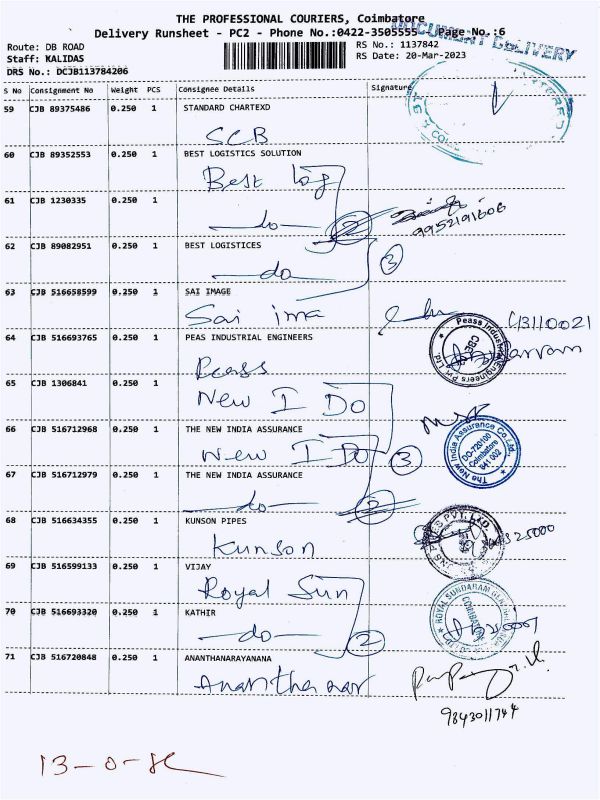 THE PROFESSIONAL COURIERS, Coimbatore
Delivery Runsheet - PC2 - Phone No.:0422-3505555 Page No.:6
DOCUMENT DELIVERY
Route: DB ROAD
Staff: KALIDAS
DRS No.: DCJB113784206
RS No.: 1137842
RS Date: 20-Mar-2023
S No Consignment No Weight PCS Consignee Details Signature
59 CJB 89375486 0.250 1 STANDARD CHARTEXD
SCB
60 CJB 89352553 0.250 1 BEST LOGISTICS SOLUTION
Best log
61 CJB 1230335 0.250 1
-do- 2
9952191606
62 CJB 89082951 0.250 1 BEST LOGISTICES
-do- 3
63 CJB 516658599 0.250 1 SAI IMAGE
Sai ima
64 CJB 516693765 0.250 1 PEAS INDUSTRIAL ENGINEERS
Peass
Peass Industrial Engineers Pvt. Ltd.
65 CJB 1306841 0.250 1
New I DO
66 CJB 516712968 0.250 1 THE NEW INDIA ASSURANCE
New I DO 3
The New India Assurance Co. Ltd.
DO-720100
Coimbatore
641 002
67 CJB 516712979 0.250 1 THE NEW INDIA ASSURANCE
-do- 2
68 CJB 516634355 0.250 1 KUNSON PIPES
Kunson
69 CJB 516599133 0.250 1 VIJAY
Royal Sun
70 CJB 516693320 0.250 1 KATHIR
-do- 2
ROYAL SUNDARAM
71 CJB 516720848 0.250 1 ANANTHANARAYANANA
Ananthanar
9843011744
13-0-